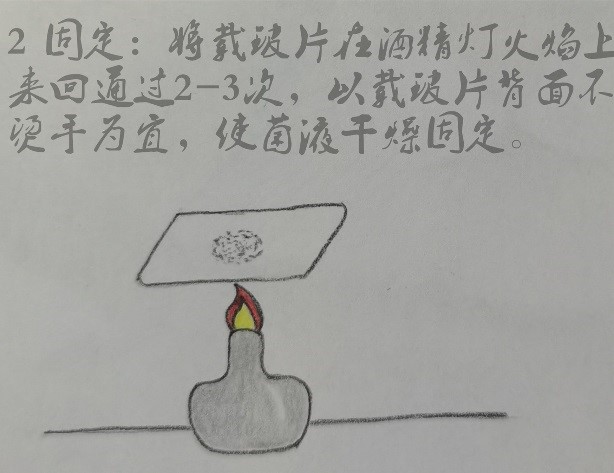 2 固定：将载玻片在酒精灯火焰上
来回通过2-3次，以载玻片背面不
烫手为宜，使菌液干燥固定。